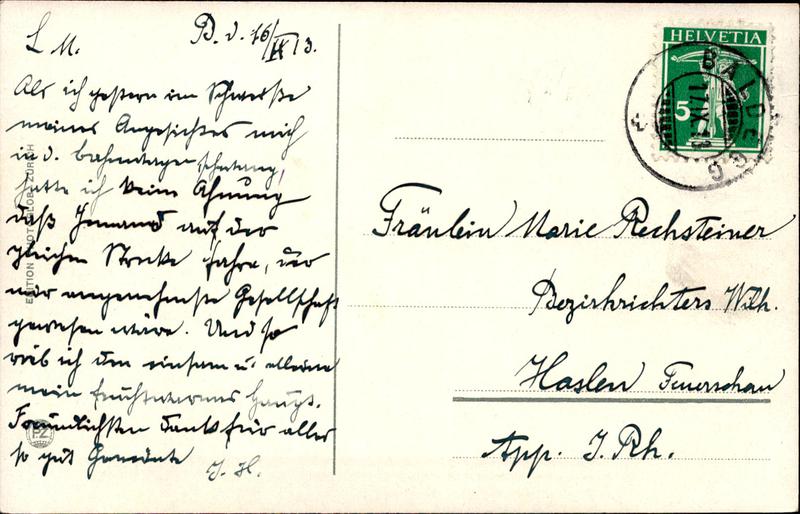 L. M.
B. d. 16/IX 13.
Als ich gestern im Schweiße
meines Angesichtes mich
in d. Bahnwagen
hatte ich keine Ahnung
daß Jemand auf der
gleichen Strecke fahre, der
mir angenehmste Gesellschaft
gewesen wäre. Und so
rieb ich den einsam u. alleine
mein Haupt.
Freundlichsten Dank für alles
so gut Gemeinte
J. H.
EDITION PHOTOGLOB ZÜRICH
PZ
HELVETIA
5
BALDEGG
17.IX.13
Fräulein Marie Rechsteiner
Bezirksrichters Wilh.
Haslen Feuerschau
App. I. Rh.